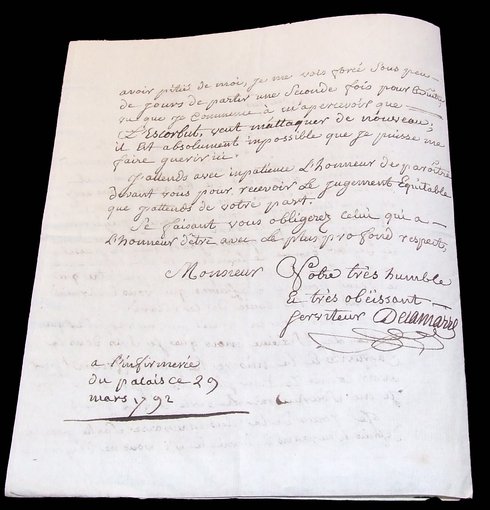 avoir pitié de moi, je me vois forcé sous peu
de jours de partir une seconde fois pour
vu que je commence à m'apercevoir que
L'Escorbut, veut m'attaquer de nouveau;
il Est absolument impossible que je puisse me
faire guerir ici.
J'attends avec impatience L'honneur de paroître
devant vous pour recevoir Le jugement Equitable
que j'attends de votre part.
Ce faisant vous obligerez celui qui a
L'honneur d'être avec Le plus profond respect,
Monsieur Votre très humble
& très obëissant
serviteur Delamarre
a l'infirmerie
du palais ce 29
mars 1792